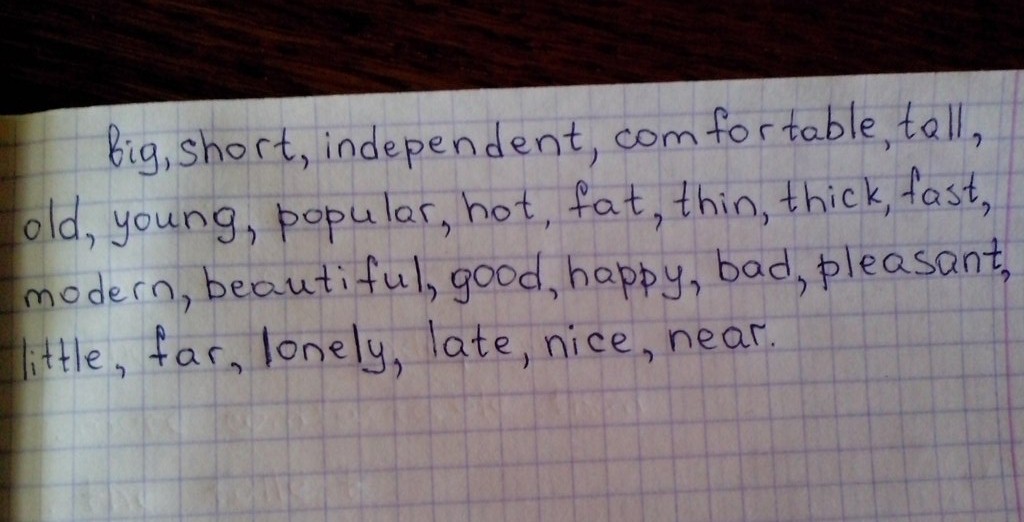 Big, short, independent, comfortable, tall,
old, young, popular, hot, fat, thin, thick, fast,
modern, beautiful, good, happy, bad, pleasant,
little, far, lonely, late, nice, near.